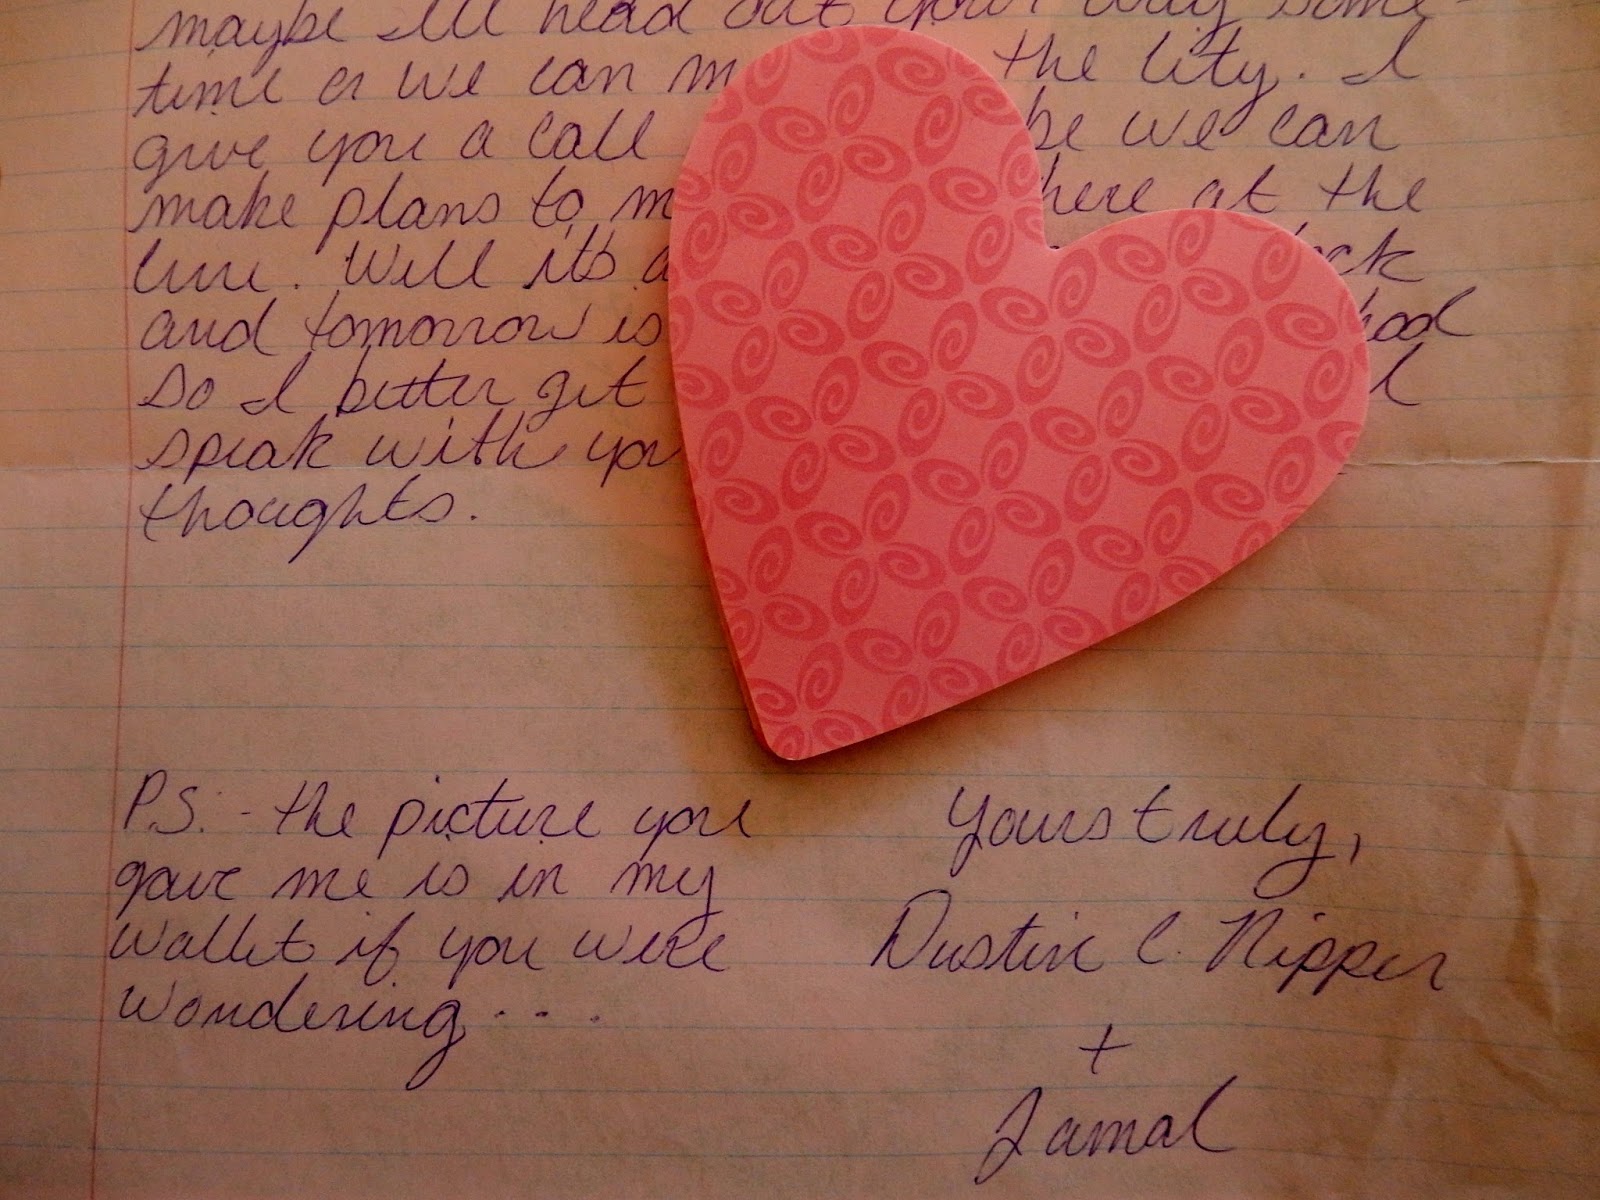 maybe Ill head out your way some-
time or we can the city. I
give you a call be we can
make plans to at the
line. Well its
and tomorrow is
so I better get
speak with you
thoughts.
P.S. - the picture you
gave me is in my
wallet if you were
wondering....
Yours truly,
Dustin C. Nipper
+
Jamal